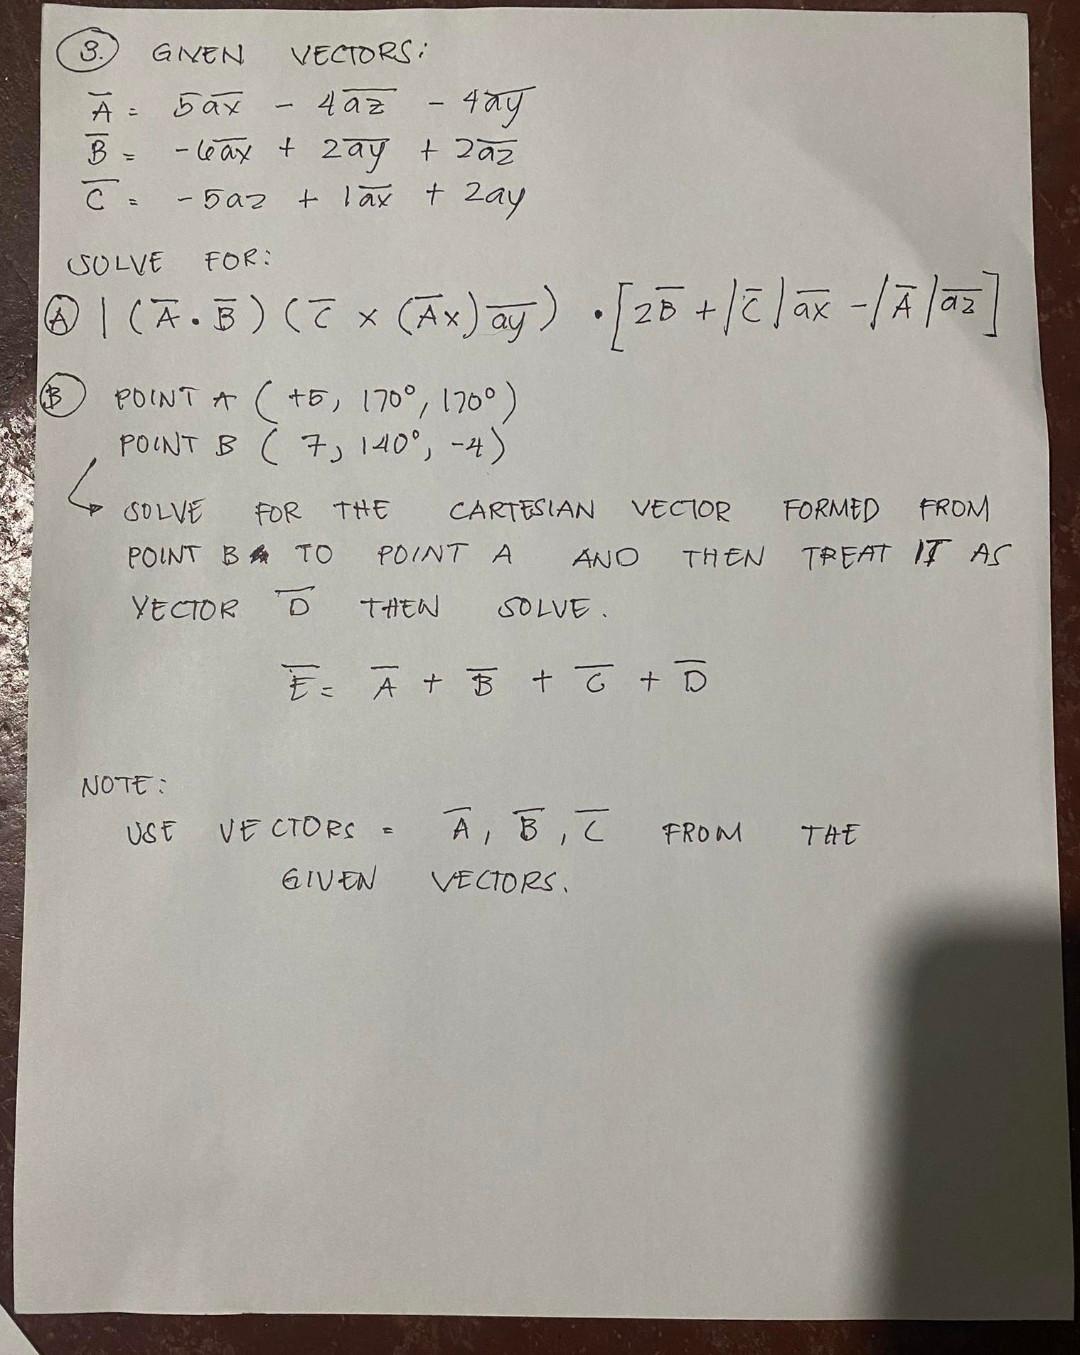 3. GIVEN VECTORS:
A̅ = 5a̅x̅ - 4a̅z̅ - 4a̅y̅
B̅ = -6a̅x̅ + 2a̅y̅ + 2a̅z̅
C̅ = -5az + 1a̅x̅ + 2ay
SOLVE FOR:
A | (A̅ . B̅) (C̅ × (A̅x) a̅y̅) • [2B̅ + |C̅| a̅x̅ - |A̅| a̅z̅]
B POINT A (+5, 170°, 170°)
POINT B (7, 140°, -4)
↳ SOLVE FOR THE CARTESIAN VECTOR FORMED FROM
POINT B TO POINT A AND THEN TREAT IT AS
VECTOR D̅ THEN SOLVE.
E̅ = A̅ + B̅ + C̅ + D̅
NOTE:
USE VECTORS = A̅, B̅, C̅ FROM THE
GIVEN VECTORS.